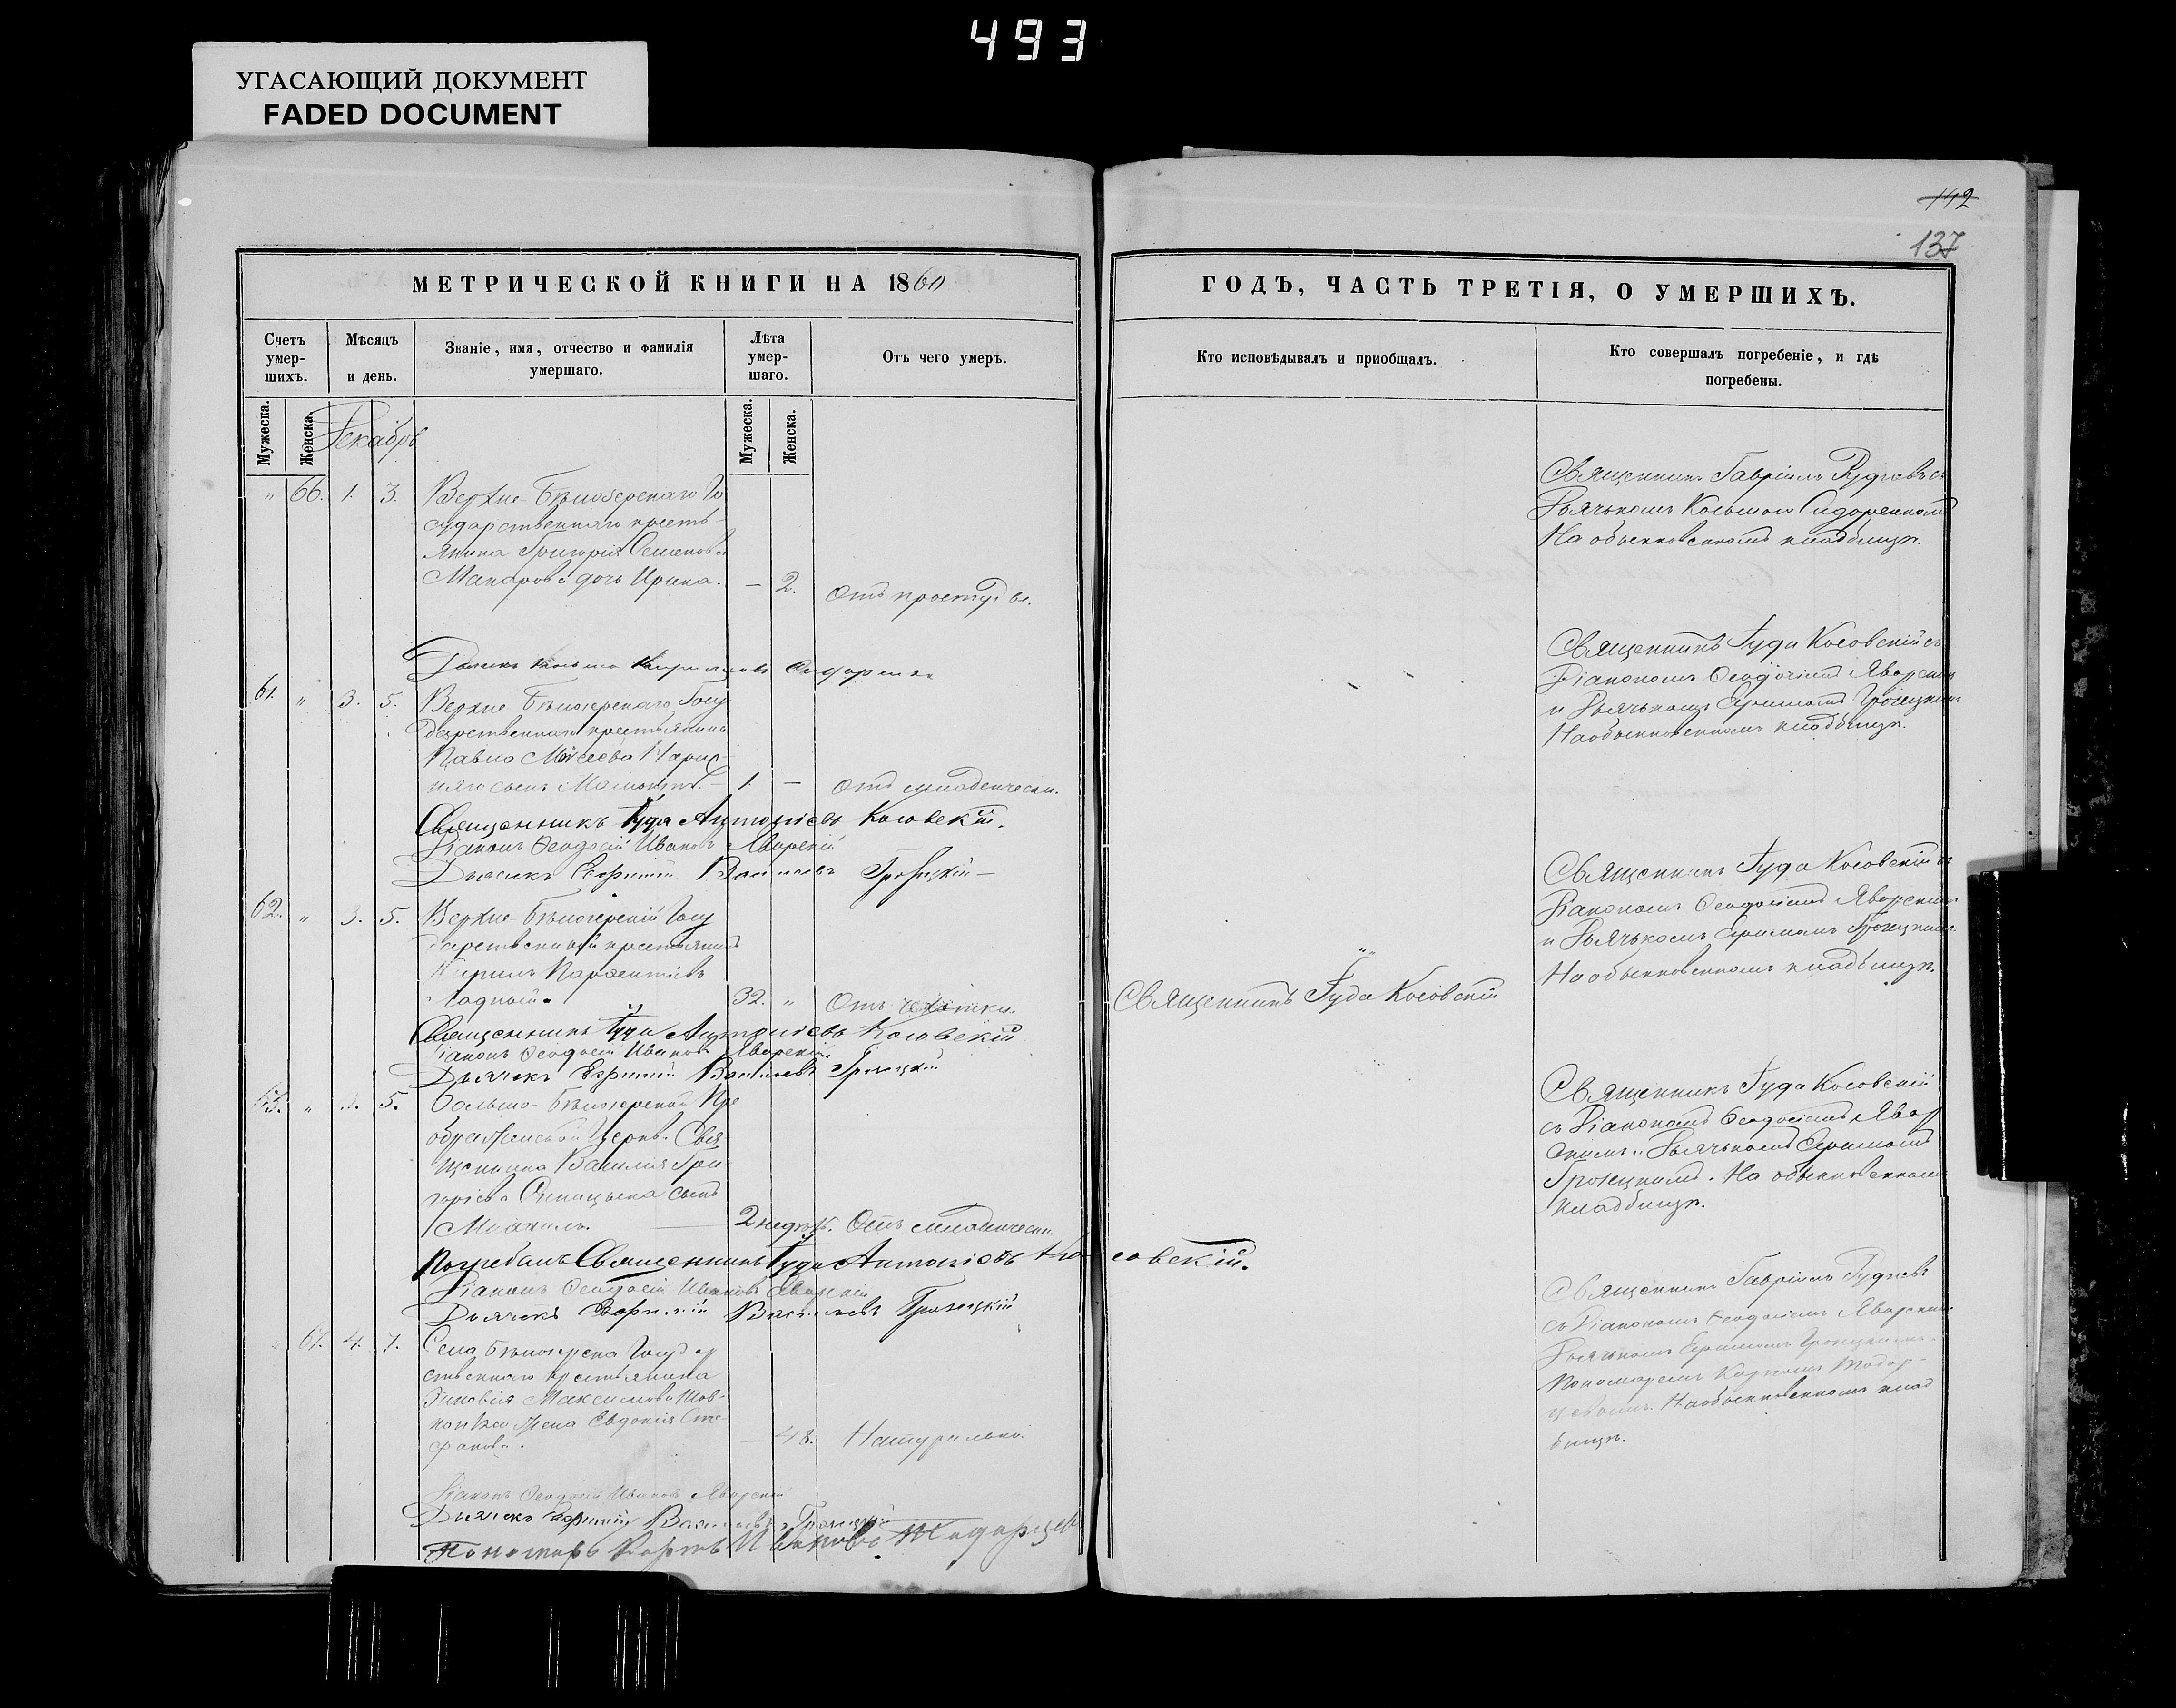 493
УГАСАЮЩИЙ ДОКУМЕНТ
FADED DOCUMENT
142
137
МЕТРИЧЕСКОЙ КНИГИ НА 1860
ГОДЪ, ЧАСТЬ ТРЕТІЯ, О УМЕРШИХЪ.
Счетъ умер-шихъ.
Мѣсяцъ и день.
Званіе, имя, отчество и фамилія умершаго.
Лѣта умер-шаго.
Отъ чего умеръ.
Кто исповѣдывалъ и приобщалъ.
Кто совершалъ погребеніе, и гдѣ погребены.
Мужеска.
Женска.
Мужеска.
Женска.
Декабрь
" 66. 1. 3. Верхне-Бѣлозерскаго Го
сударственнаго кресть-
янина Григорія Семенова
Макарова дочь Ирина. — 2. Отъ простуды.
Священникъ Гавріилъ Рудневъ съ
Дьячькомъ Косьмою Сидоренкомъ
На обыкновенномъ кладбищѣ.
Дьячекъ Косьма Сидоренко
61. " 3. 5. Верхне Бѣлозерскаго Госу
дарственнаго крестьянина
Павла Моѵсеева
сынъ 1. — Отъ младенческ.
Священникъ Іуда Косовскій съ
Діакономъ Ѳеодосіемъ Яворским
и Дьячькомъ Ефимомъ Грозецкимъ
На обыкновенномъ кладбищѣ.
Священникъ Іуда Антоніевъ Косовскій.
Діаконъ Ѳеодосій Ивановъ Яворскій
Дьячекъ Ефимій Васильевъ Грозецкій
62. " 3. 5. Верхне-Бѣлозерскій Госу
дарственный крестьянинъ
Кирилъ
Ладный. 32. " Отъ чахотки.
Священникъ Іуда Косовскій
Священникъ Іуда Косовскій съ
Діакономъ Ѳеодосіемъ Яворским
и Дьячькомъ Ефимомъ Грозецким
На обыкновенномъ кладбищѣ.
Священникъ Іуда Антоніевъ Косовскій
Діаконъ Ѳеодосій Ивановъ Яворскій
Дьячекъ Ефимій Васильевъ Грозецкій
" 5. Больше-Бѣлозерской Пре
ображенской Церкви Свя-
щенника Василія Гри-
горіева сынъ
Михаилъ. 2 недѣл. Отъ младенческ.
Священникъ Іуда Косовскій
съ Діакономъ Ѳеодосіемъ Явор
скимъ и Дьячькомъ Ефимомъ
Грозецкимъ. На обыкновенномъ
кладбищѣ.
Погребалъ Священникъ Іуда Антоніевъ Косовскій.
Діаконъ Ѳеодосій Ивановъ Яворскій
Дьячекъ Ефимій Васильевъ Грозецкій
" 67. 4. 7. Села Бѣлозерска Государ
ственнаго крестьянина
Зиновія Максимова
жена Евдокія Сте-
фанова. — 48. Натурально.
Священникъ Гавріилъ Рудневъ
съ Діакономъ Ѳеодосіемъ Яворским
Дьячькомъ Ефимомъ Грозецкимъ
Пономаремъ Карпомъ Тодор-
цевымъ. На обыкновенномъ клад
бищѣ.
Діаконъ Ѳеодосій Ивановъ Яворскій
Дьячекъ Ефимій Васильевъ Грозецкій
Пономарь Карпъ Ивановъ Тодорцев